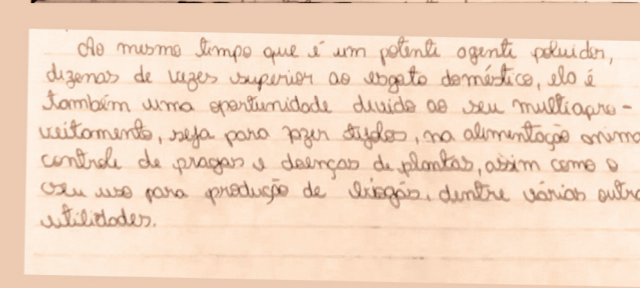 Ao mesmo tempo que é um potente agente poluidor,
dizenas de vezes superior ao esgoto doméstico, ela é
também uma oportunidade devido ao seu multiapro-
veitamento, seja para fazer tijolos, na alimentação anima
controle de pragas e doenças de plantas, assim como o
seu uso para produção de biogás, dentre várias outra
utilidades.